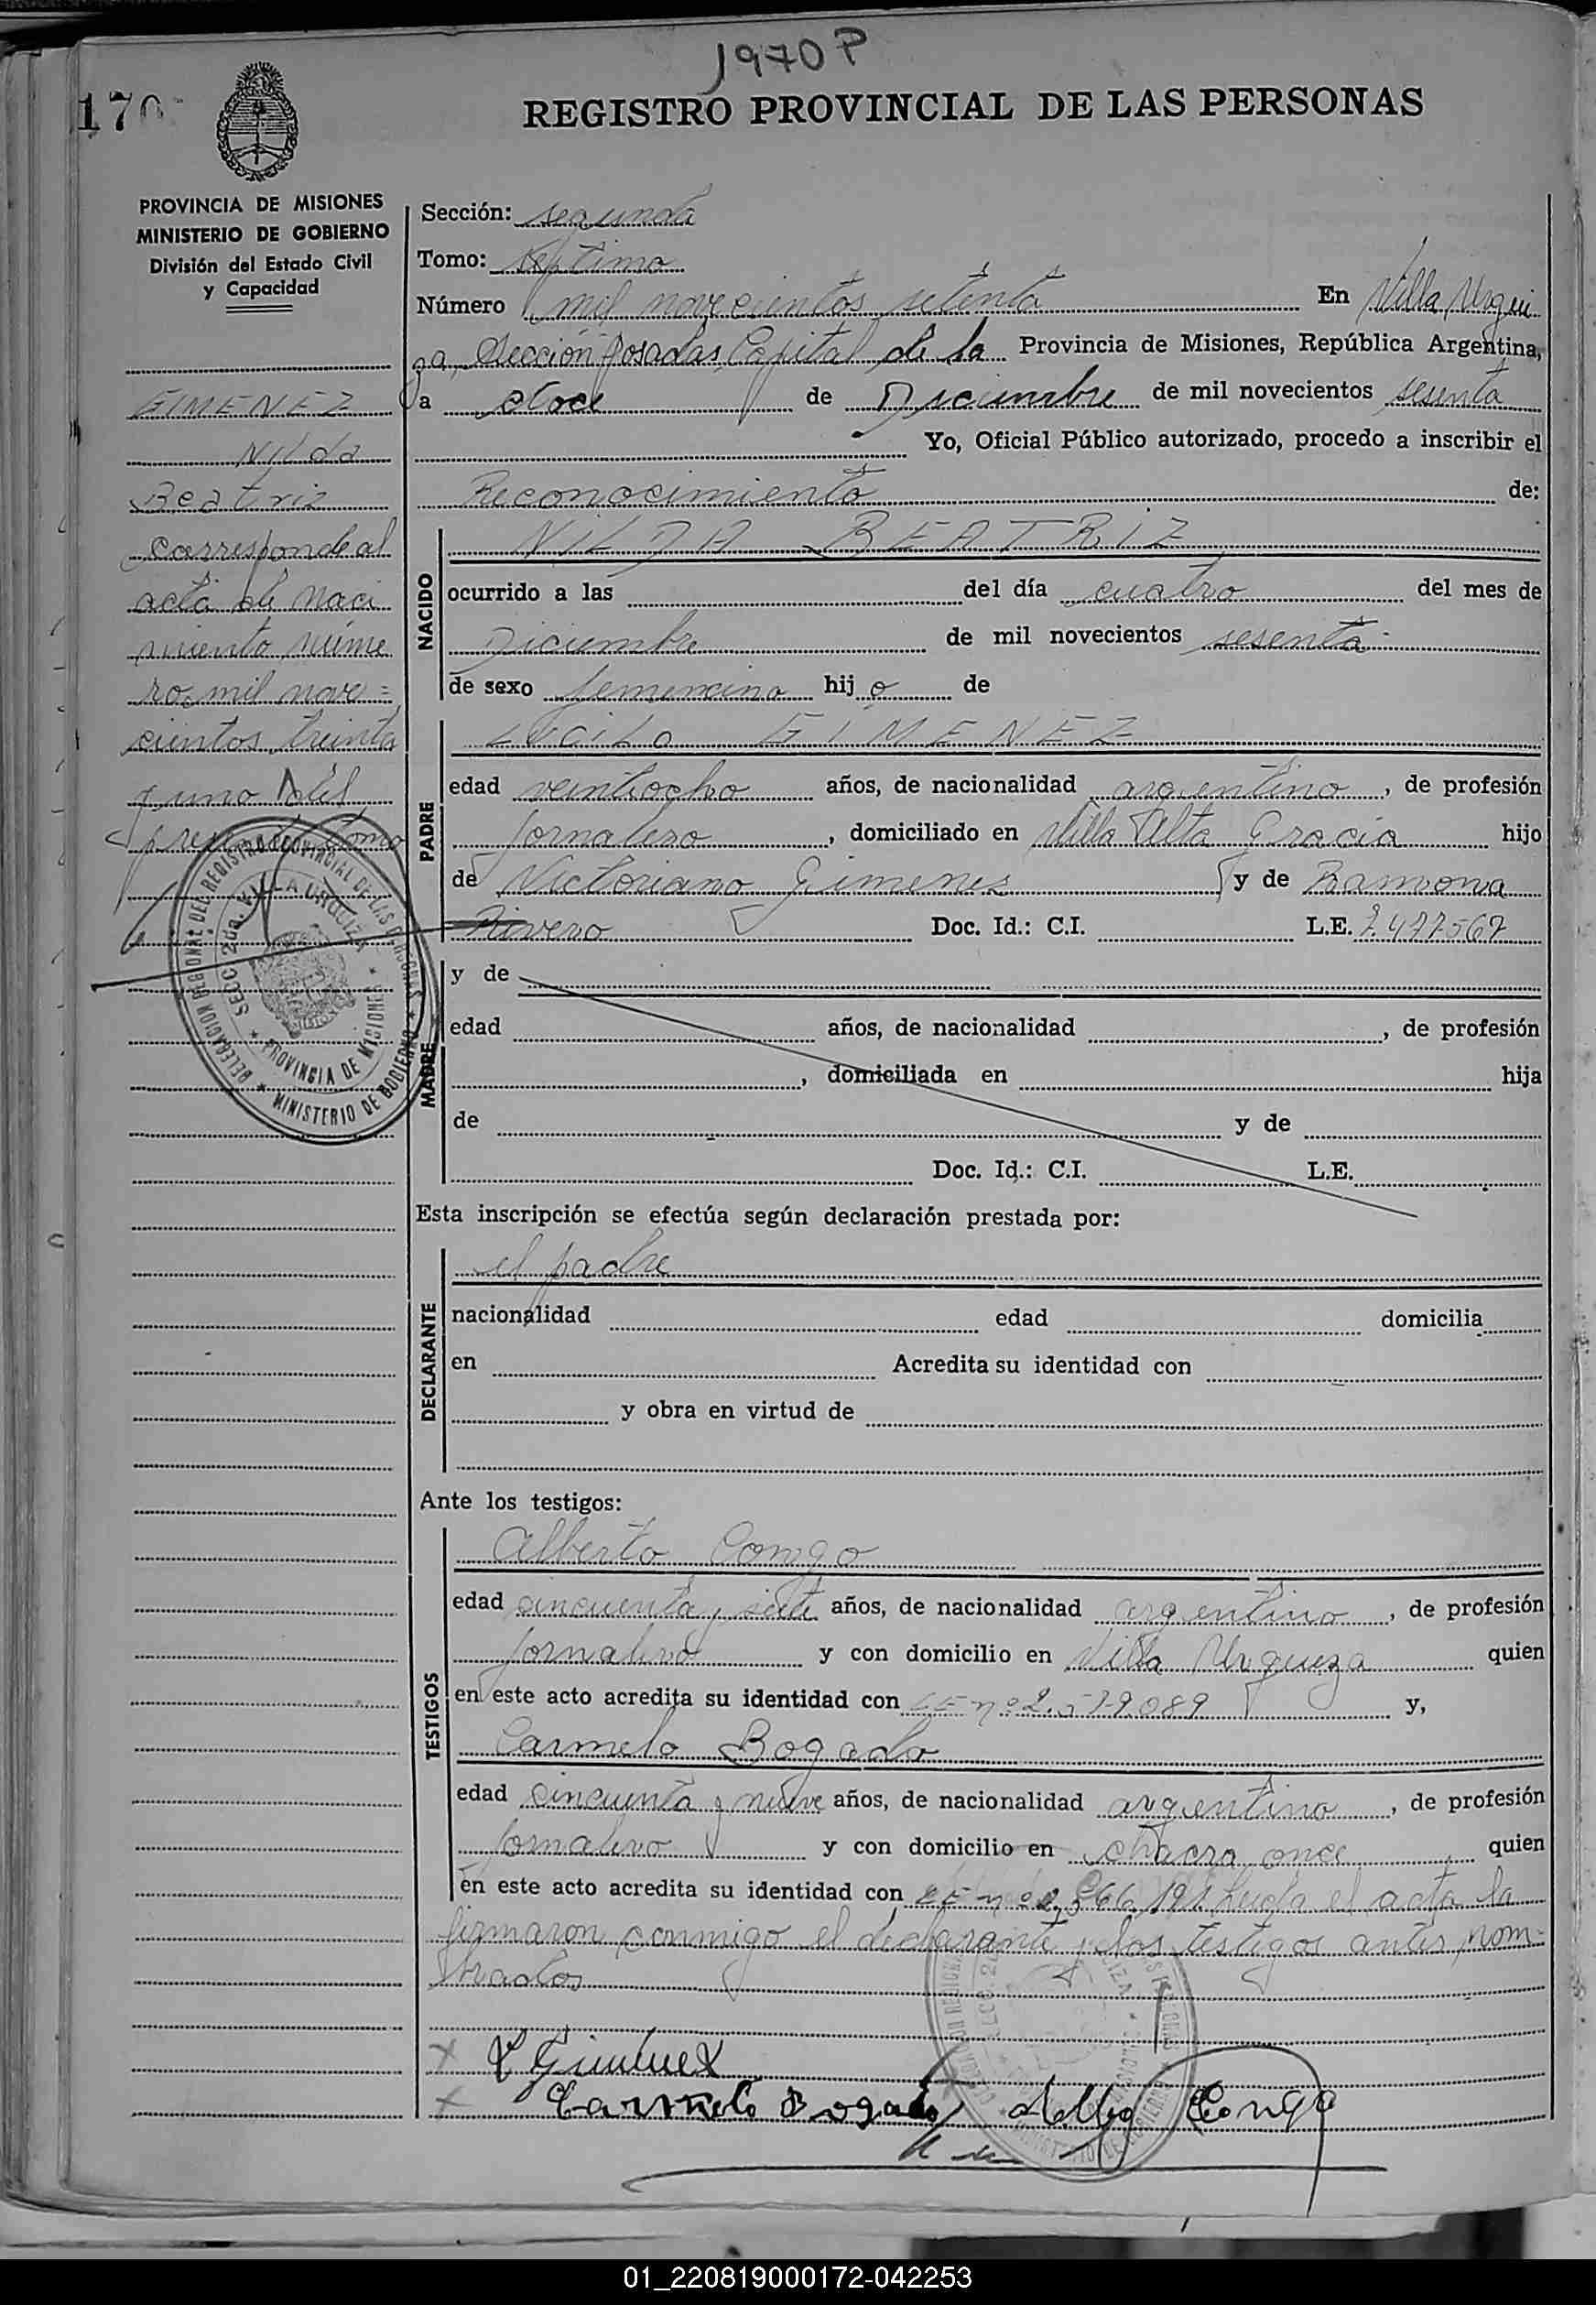 1970 P
170
REGISTRO PROVINCIAL DE LAS PERSONAS
PROVINCIA DE MISIONES
MINISTERIO DE GOBIERNO
División del Estado Civil
y Capacidad
GIMENEZ
Nilda
Beatriz
corresponde al
acta de naci
miento núme
ro mil nove=
cientos treinta
y uno del
presente tomo
DELEGACION REGIONAL DEL REGISTRO PROVINCIAL DE LAS PERSONAS
SECC. 2da. VILLA URQUIZA
PROVINCIA DE MISIONES
MINISTERIO DE GOBIERNO
Sección: segunda
Tomo: septimo
Número mil novecientos setenta En Villa Urqui
za, Sección Posadas, Capital de la Provincia de Misiones, República Argentina,
a doce de Diciembre de mil novecientos sesenta
Yo, Oficial Público autorizado, procedo a inscribir el
Reconocimiento de:
NACIDO
NILDA BEATRIZ
ocurrido a las del día cuatro del mes de
Diciembre de mil novecientos sesenta
de sexo femenino hij o de
PADRE
LUCILO GIMENEZ
edad veintiocho años, de nacionalidad argentino, de profesión
jornalero, domiciliado en Villa Alta Gracia hijo
de Victoriano Gimenes y de Ramona
Rivero Doc. Id.: C.I. L.E.
MADRE
y de
edad años, de nacionalidad , de profesión
, domiciliada en hija
de y de
Doc. Id.: C.I. L.E.
Esta inscripción se efectúa según declaración prestada por:
DECLARANTE
el padre
nacionalidad edad domicilia
en Acredita su identidad con
y obra en virtud de
Ante los testigos:
TESTIGOS
Alberto Congo
edad cincuenta y siete años, de nacionalidad argentino, de profesión
jornalero y con domicilio en Villa Urquiza quien
en este acto acredita su identidad con LE nº y,
Carmelo Bogado
edad cincuenta y nueve años, de nacionalidad argentino, de profesión
jornalero y con domicilio en chacra once quien
en este acto acredita su identidad con LE nº Leida el acta la
firmaron conmigo el declarante y los testigos antes nom-
brados
L Gimenez
Carmelo Bogado Congo
01_220819000172-042253